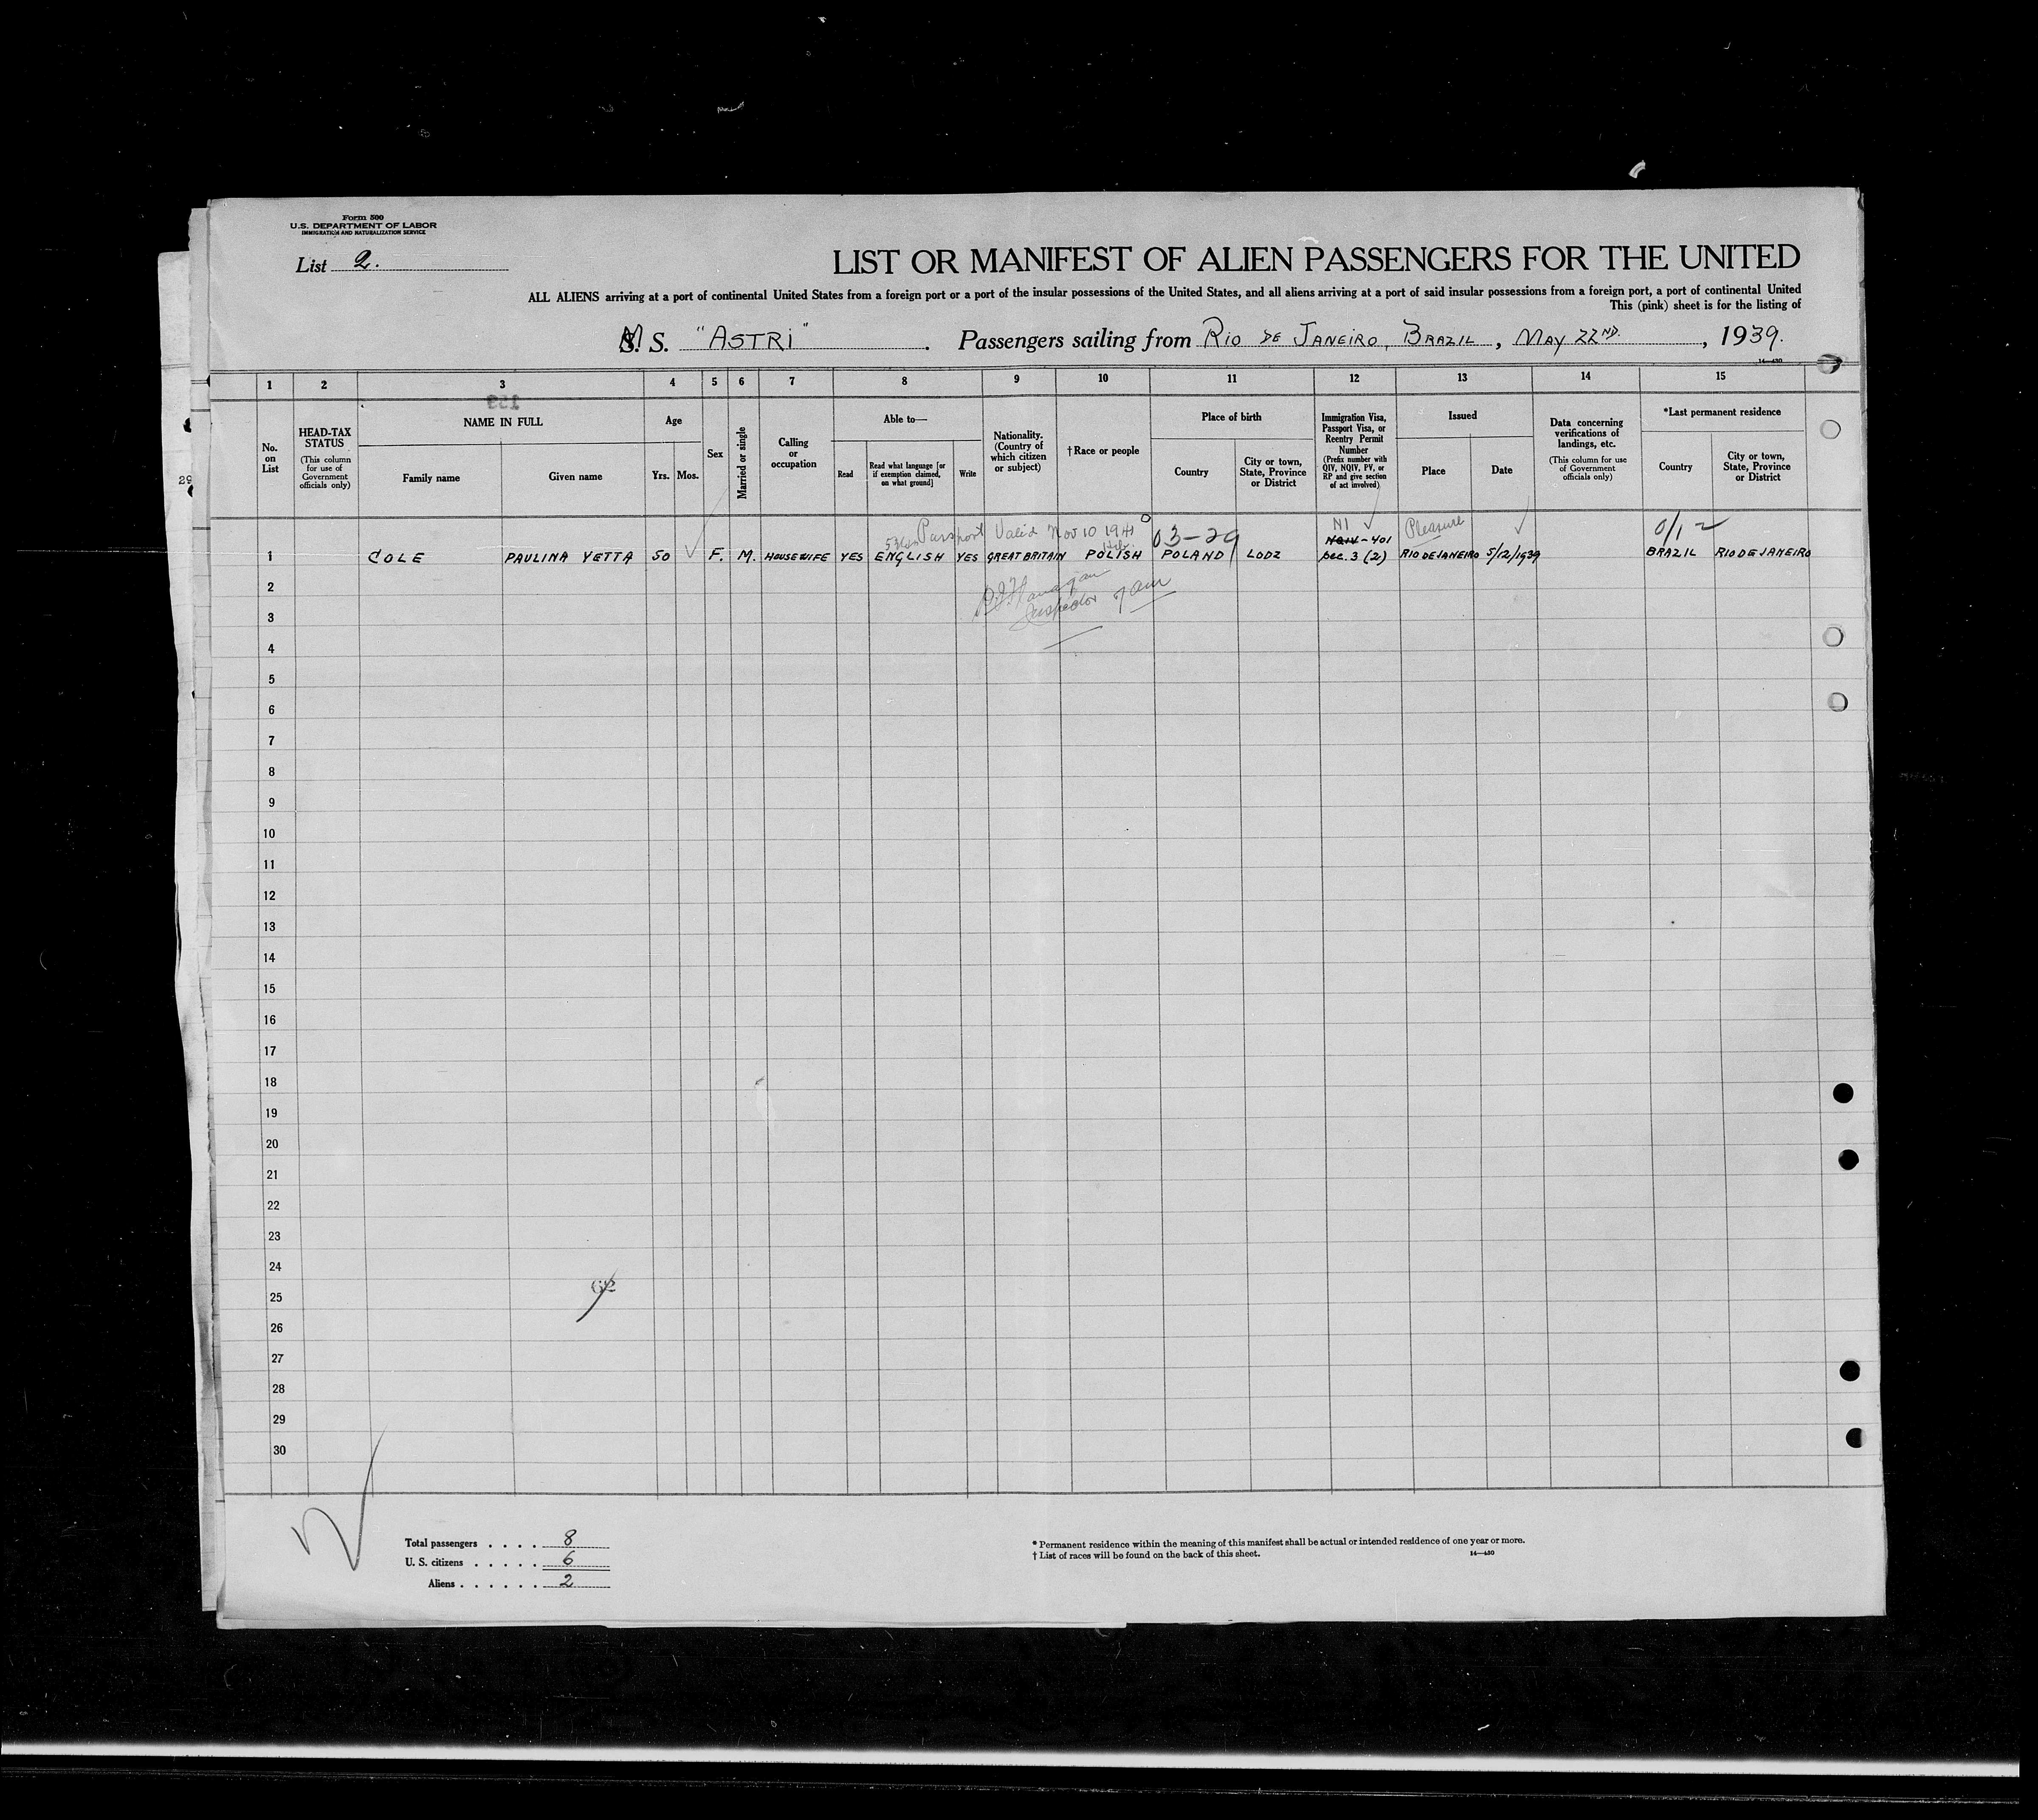 Form 500
U.S. DEPARTMENT OF LABOR
IMMIGRATION AND NATURALIZATION SERVICE
List 2.
LIST OR MANIFEST OF ALIEN PASSENGERS FOR THE UNITED
ALL ALIENS arriving at a port of continental United States from a foreign port or a port of the insular possessions of the United States, and all aliens arriving at a port of said insular possessions from a foreign port, a port of continental United
This (pink) sheet is for the listing of
M. S. "ASTRI". Passengers sailing from RIO DE JANEIRO, BRAZIL, MAY 22ND., 1939.
14—430
1 2 3 4 5 6 7 8 9 10 11 12 13 14 15
No. on List
HEAD-TAX STATUS (This column for use of Government officials only)
NAME IN FULL
Family name
Given name
Age
Yrs. Mos.
Sex
Married or single
Calling or occupation
Able to—
Read
Read what language [or if exemption claimed, on what ground]
Write
Nationality. (Country of which citizen or subject)
†Race or people
Place of birth
Country
City or town, State, Province or District
Immigration Visa, Passport Visa, or Reentry Permit Number (Prefix number with QIV, NQIV, PV, or RP and give section of act involved)
Issued
Place
Date
Data concerning verifications of landings, etc. (This column for use of Government officials only)
*Last permanent residence
Country
City or town, State, Province or District
29
Passport Valid Nov 10 1941 03-29 NI Pleasure 0/12
Heb.
1 COLE PAULINA YETTA 50 F. M. HOUSEWIFE YES ENGLISH YES GREAT BRITAIN POLISH POLAND LODZ NQIV-401 Sec. 3 (2) RIO DE JANEIRO 5/12/1939 BRAZIL RIO DE JANEIRO
2
Inspector
3
4
5
6
7
8
9
10
11
12
13
14
15
16
17
18
19
20
21
22
23
24
25
26
27
28
29
30
Total passengers . . . . 8
U. S. citizens . . . . . 6
Aliens . . . . . . 2
* Permanent residence within the meaning of this manifest shall be actual or intended residence of one year or more.
† List of races will be found on the back of this sheet.
14—430